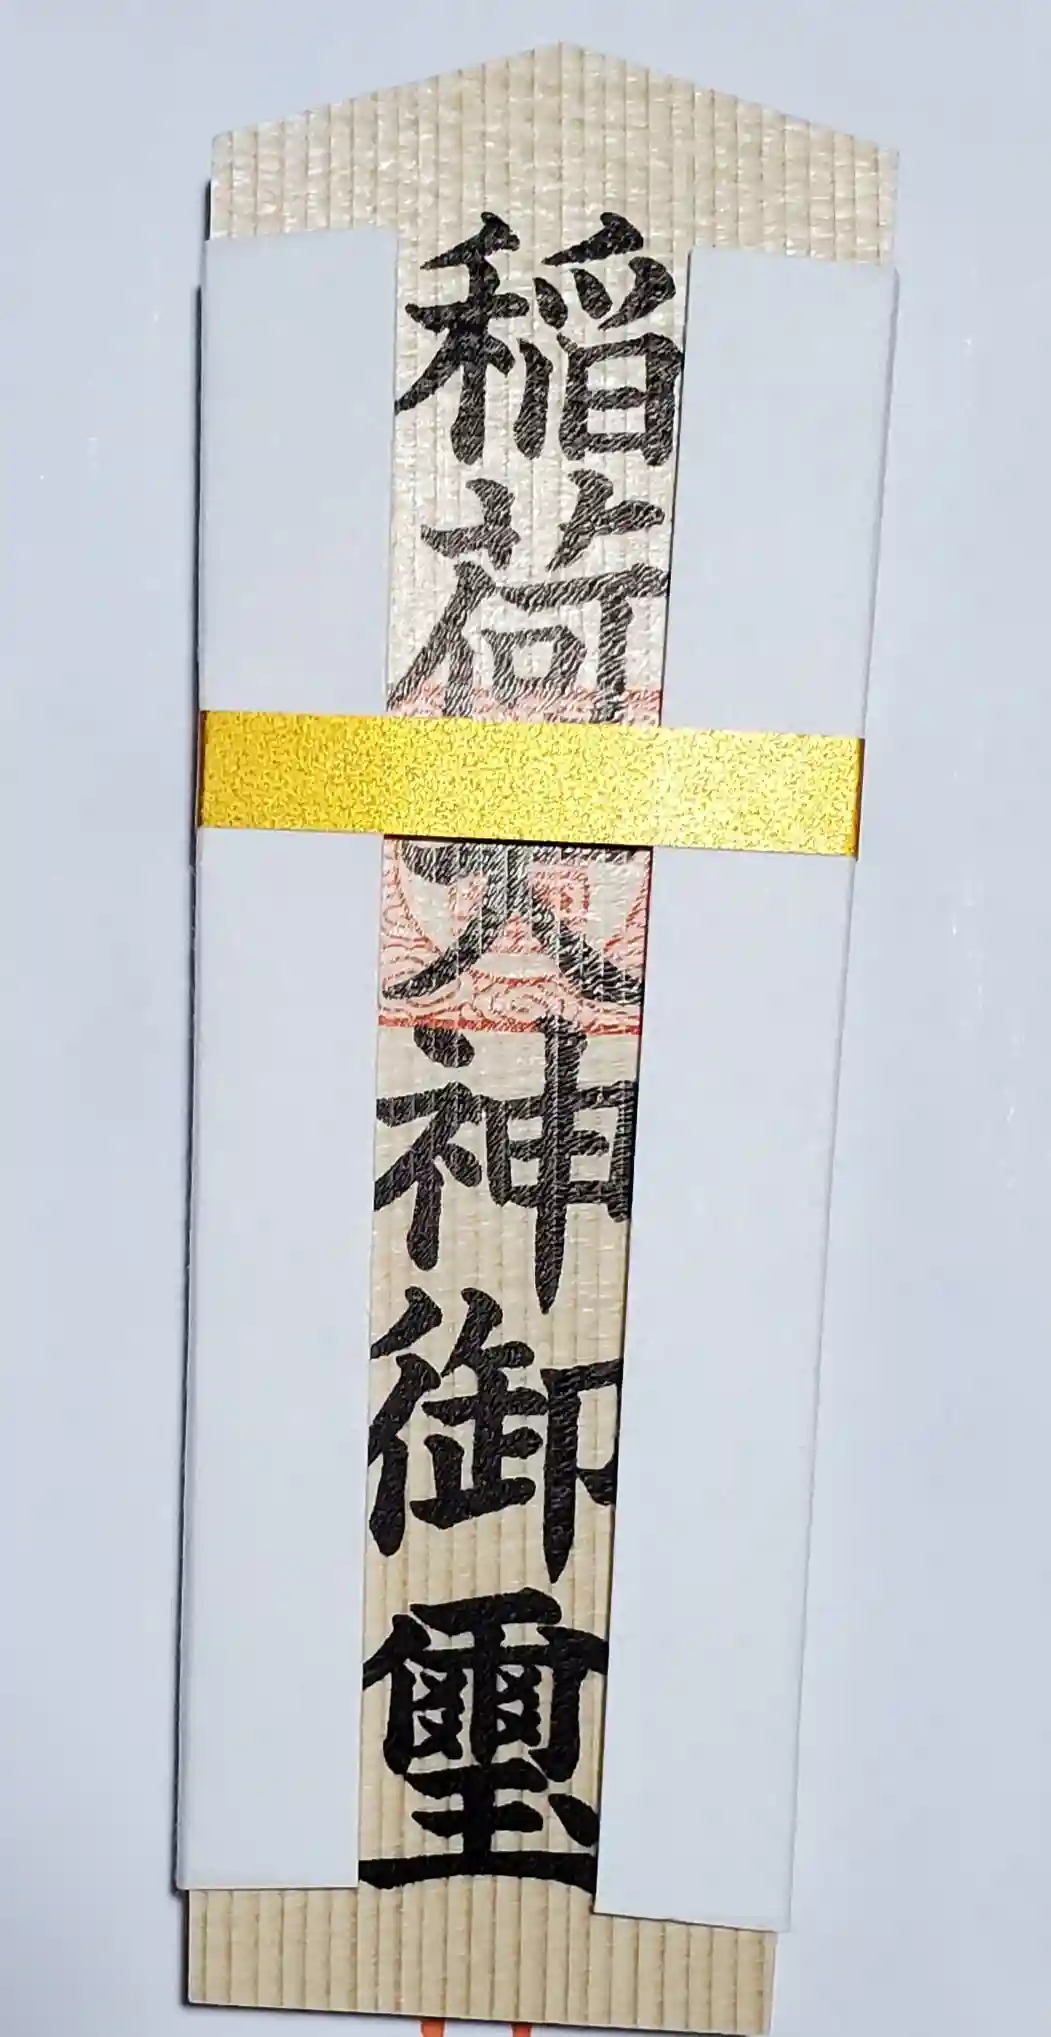 稲荷大神御璽